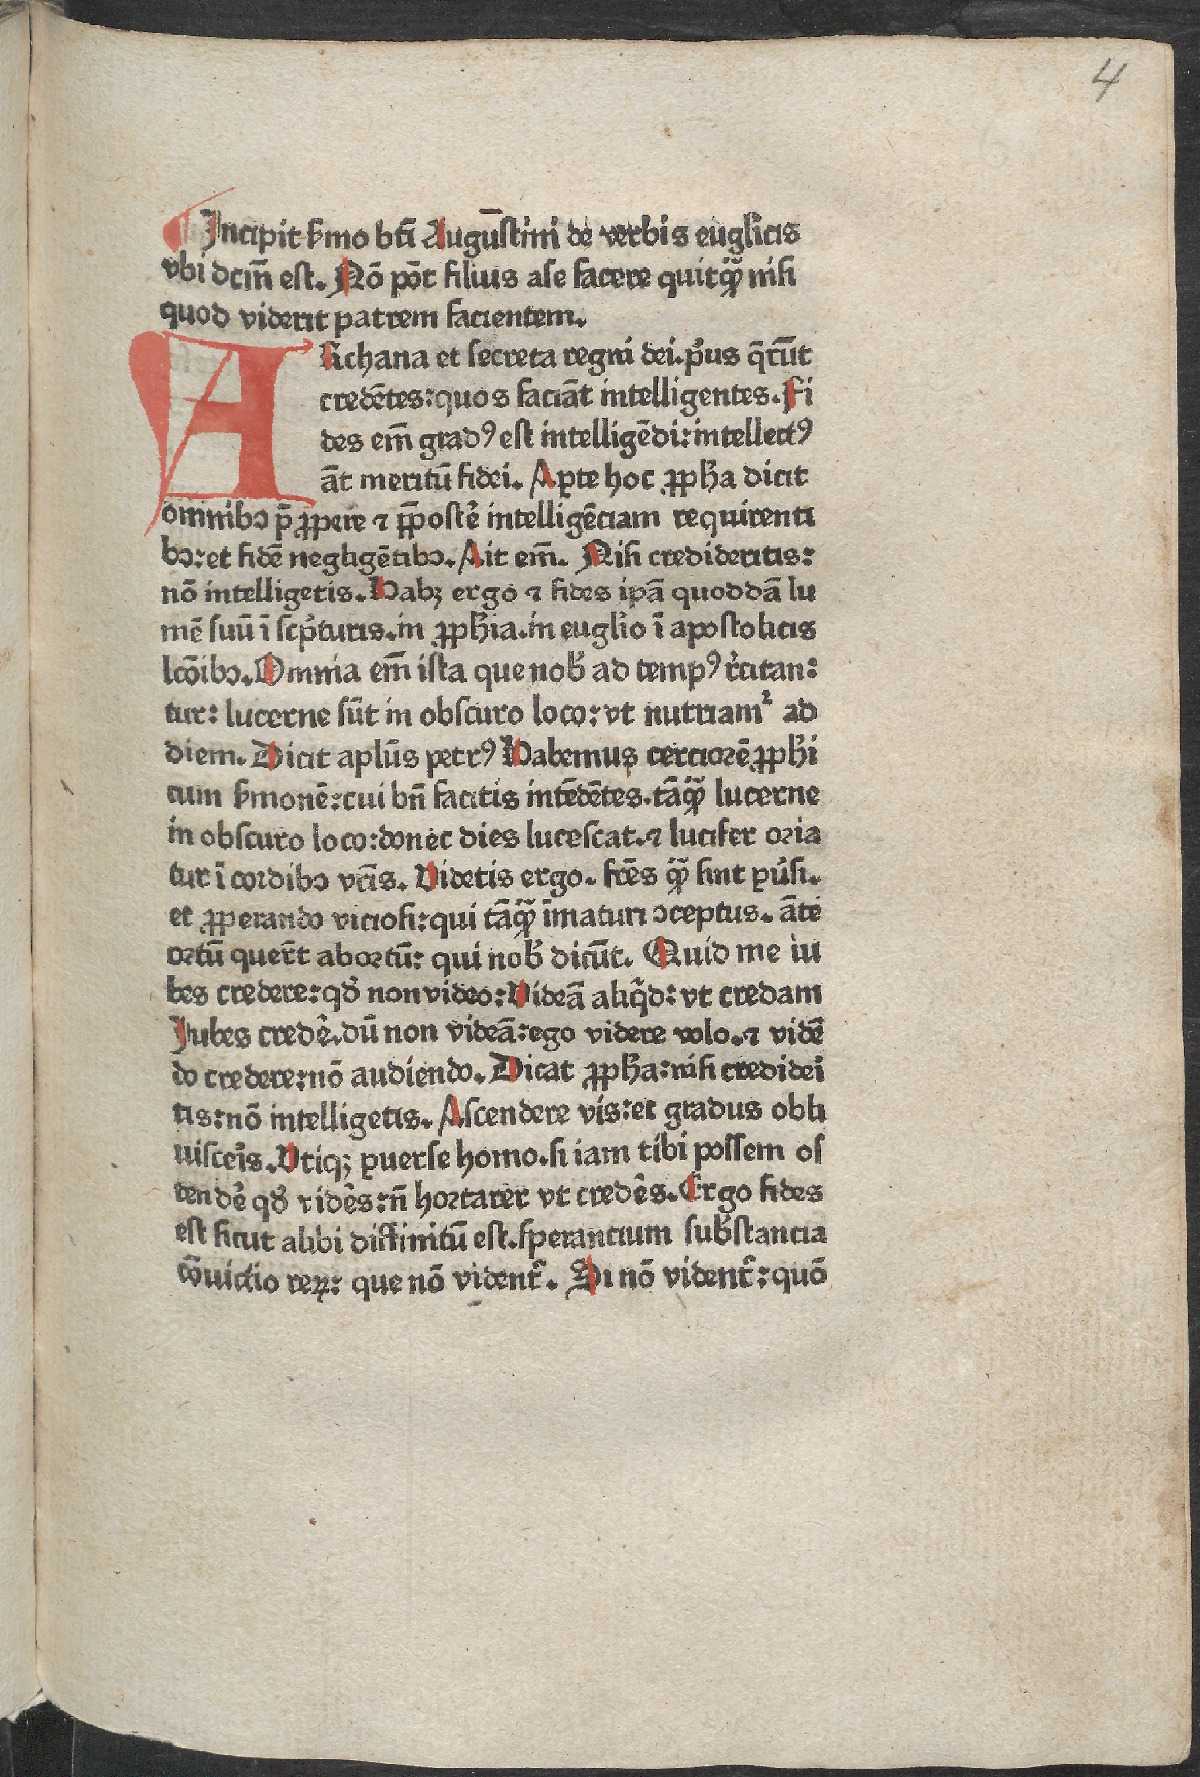 4
Incipit ẜmo bti̅ Augusti̅ni de verbis euglicis
vbi dcm̅ est. No̅ po̅t filius ase facere quitqȝ̃ nisi
quod viderit patrem facientem.
Archana et secreta regni dei. pꝰus q̅ru̅t
crede̅tes: quos facia̅t intelligentes. Fi
des em̅ gradꝰ est intellige̅di: intellectꝰ
a̅t meritu̅ fidei. Apte hoc ꝓpha dicit
omnibɔ p̅ ꝓpere ⁊ p̅poste̅ intellige̅ciam requirenti
bɔ: et fide̅ neglige̅tibɔ. Ait em̅. Nisi credideritis:
no̅ intelligetis. Habꝫ ergo ⁊ fides ipa̅ quodda̅ lu
me̅ suu̅ i̅ scp̅turis. in ꝓphia. in euglio i̅ apostolicis
lco̅ibɔ. Omnia em̅ ista que nob̕ ad tempꝰ r̕citan:
tur: lucerne su̅t in obscuro loco: vt nutriam² ad
diem. Dicit aplu̅s petrꝰ Habemus cerciore̅ ꝓphi
cum ẜmone̅: cui bn̅ facitis inte̅de̅tes. ta̅qȝ̃ lucerne
in obscuro loco: donec dies lucescat. ⁊ lucifer oria
tur i̅ cordibɔ vr̅is. Videtis ergo. fr̅es qȝ̃ sint ꝑu̕si.
et ꝓperando viciosi: qui ta̅qȝ̃ i̅maturi ɔceptus. a̅te
ortu̅ quer̅t abortu̅: qui nob̕ dicu̅t. Quid me iu
bes credere: qd̕ non video: Videa̅ aliq̕d: vt credam
Jubes crede̅. du̅ non videa̅: ego videre volo. ⁊ vide̅
do credere: no̅ audiendo. Dicat ꝓpha: nisi credidei̕
tis: no̅ intelligetis. Ascendere vis: et gradus obli
uiscei̕s. Vtiqꝫ ꝑuerse homo. si iam tibi possem os
tende̕ qd̕ vide̕s: n̅ hortarer vt crede̕s. Ergo fides
est sicut alibi diffinitu̅ est. sperancium sub̕stancia
co̅uictio reꝝ: que no̅ vident̕. Si no̅ vident̕: quo̅